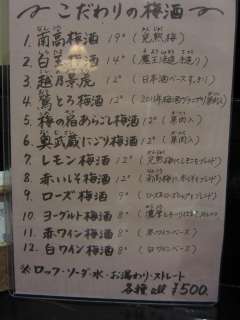 こだわりの梅酒
1. 南高梅酒 19° (完熟梅)
2. 白玉梅酒 14° (魔王法造り)
3. 越乃景虎 12° (日本酒ベースすっきり)
4. 鶯とろ梅酒 12°
5. 梅の宿あらごし梅酒 12° (果肉入)
6. 奥武蔵にごり梅酒 12° (果肉入)
7. レモン梅酒 12°
8. 赤いしそ梅酒 12°
9. ローズ梅酒 9°
10. ヨーグルト梅酒 8°
11. 赤ワイン梅酒 8° (赤ワインベース)
12. 白ワイン梅酒 8° (白ワインベース)
※ロック・ソーダ・水・お湯わり・ストレート
各種all ¥500.